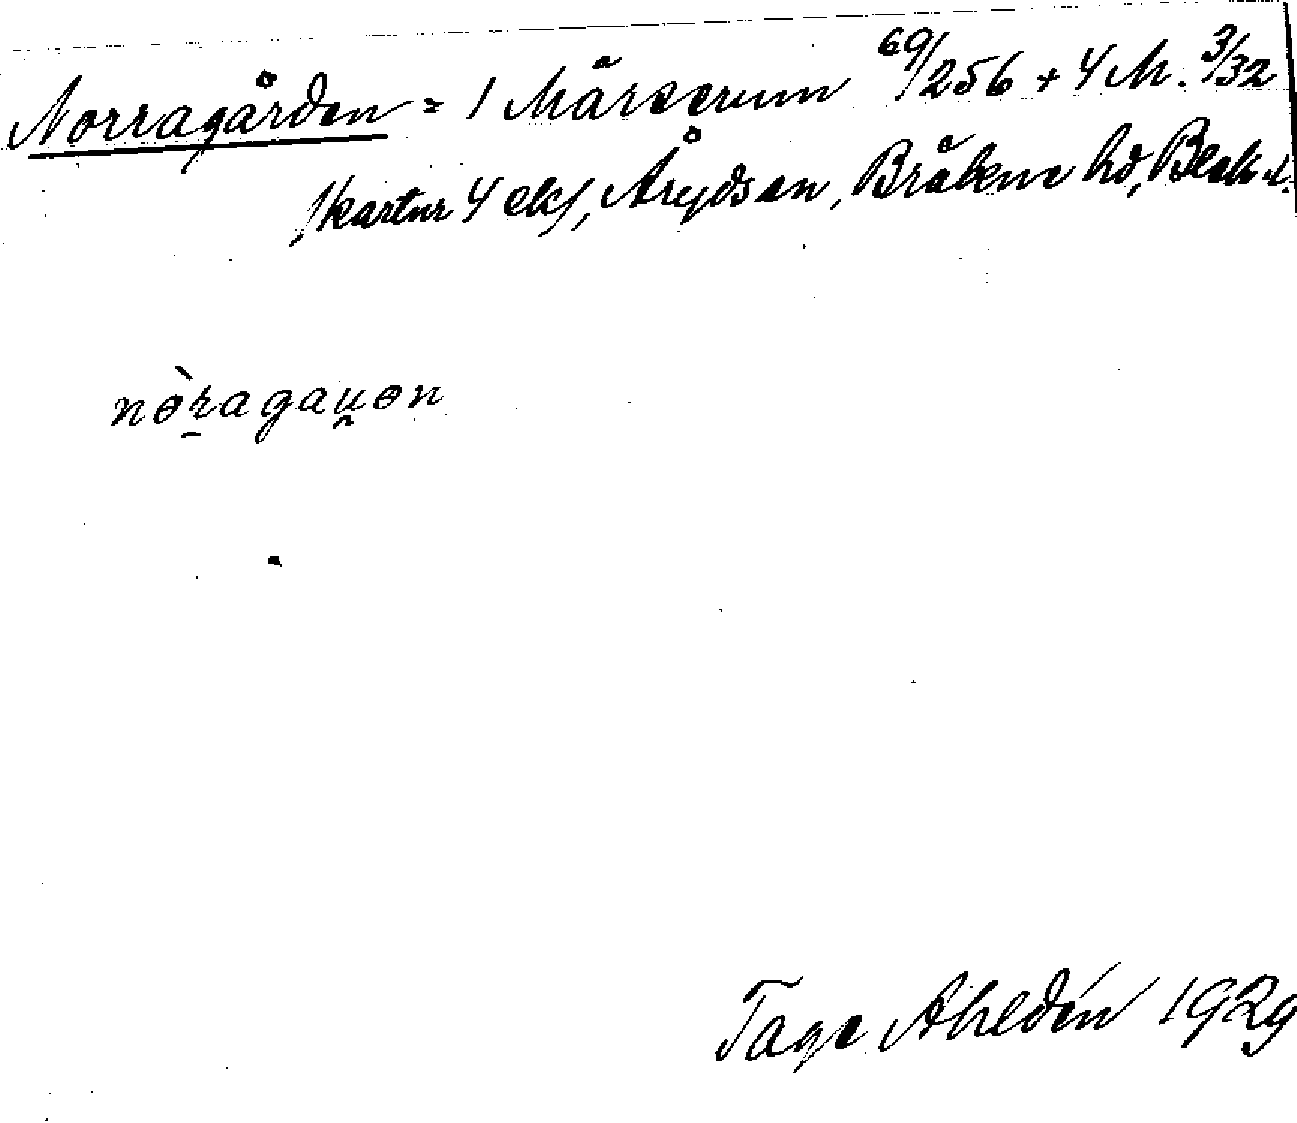 Norragården = 1 Märserum 69/256 + 4 M. 3/32
/kartnr 4 ek/, Åryds sn, Bräkne hd, Blek. l.
nòragau̯ɵn
Tage Ahldén 1929